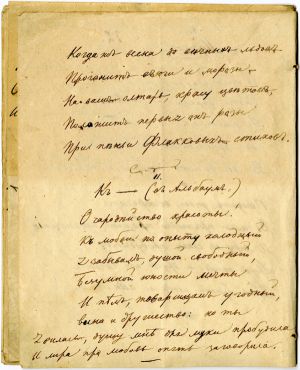 Когда жъ весна до вечныхъ льдовъ
Прогонитъ вьюги и морозы
На вашъ олтарь, красу цвѣтовъ,
Положитъ первыя онъ розы
При пѣньи Флакковыхъ стиховъ.
II.
Къ — (въ Альбомъ.)
О чародѣйство красоты!
Къ любви по опыту холодный
Я забывалъ, душой свободный,
Безумной юности мечты
И пѣлъ, товарищамъ угодный,
вина и дружество: но ты
явилась, душу мнѣ для муки пробудила
И лира про любовь опять заговорила.